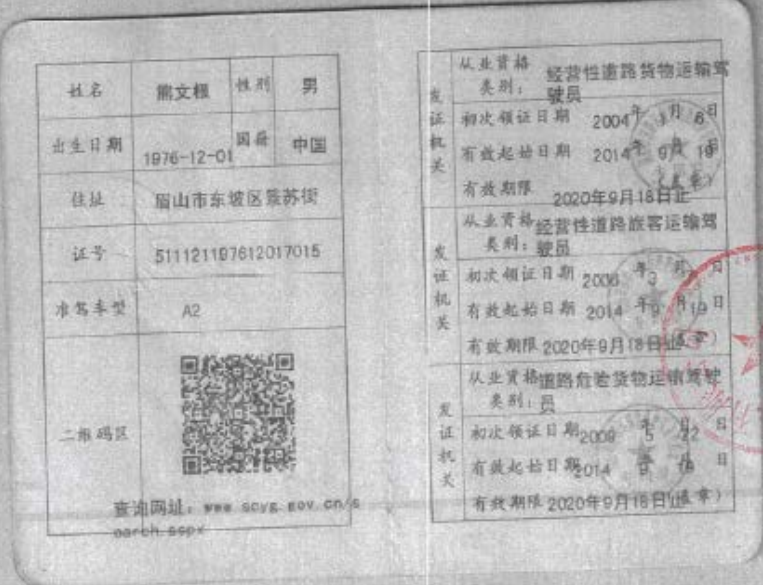 姓名 熊文根 性别 男
出生日期 1976-12-01 国籍 中国
住址 眉山市东坡区纱苏街
证号 511121197612017015
准驾车型 A2
二维码区
查询网址：www.scyg.gov.cn/s
earch.aspx
发证机关
从业资格类别：经营性道路货物运输驾
驶员
初次领证日期 2004年 月6日
有效起始日期 2014年9月19日
有效期限 2020年9月18日止（盖章）
发证机关
从业资格类别：经营性道路旅客运输驾
驶员
初次领证日期 2006年3月 日
有效起始日期 2014年9月19日
有效期限 2020年9月18日止（盖章）
发证机关
从业资格类别：道路危险货物运输驾驶
员
初次领证日期 2009年5月22日
有效起始日期 2014年9月19日
有效期限 2020年9月18日止（盖章）